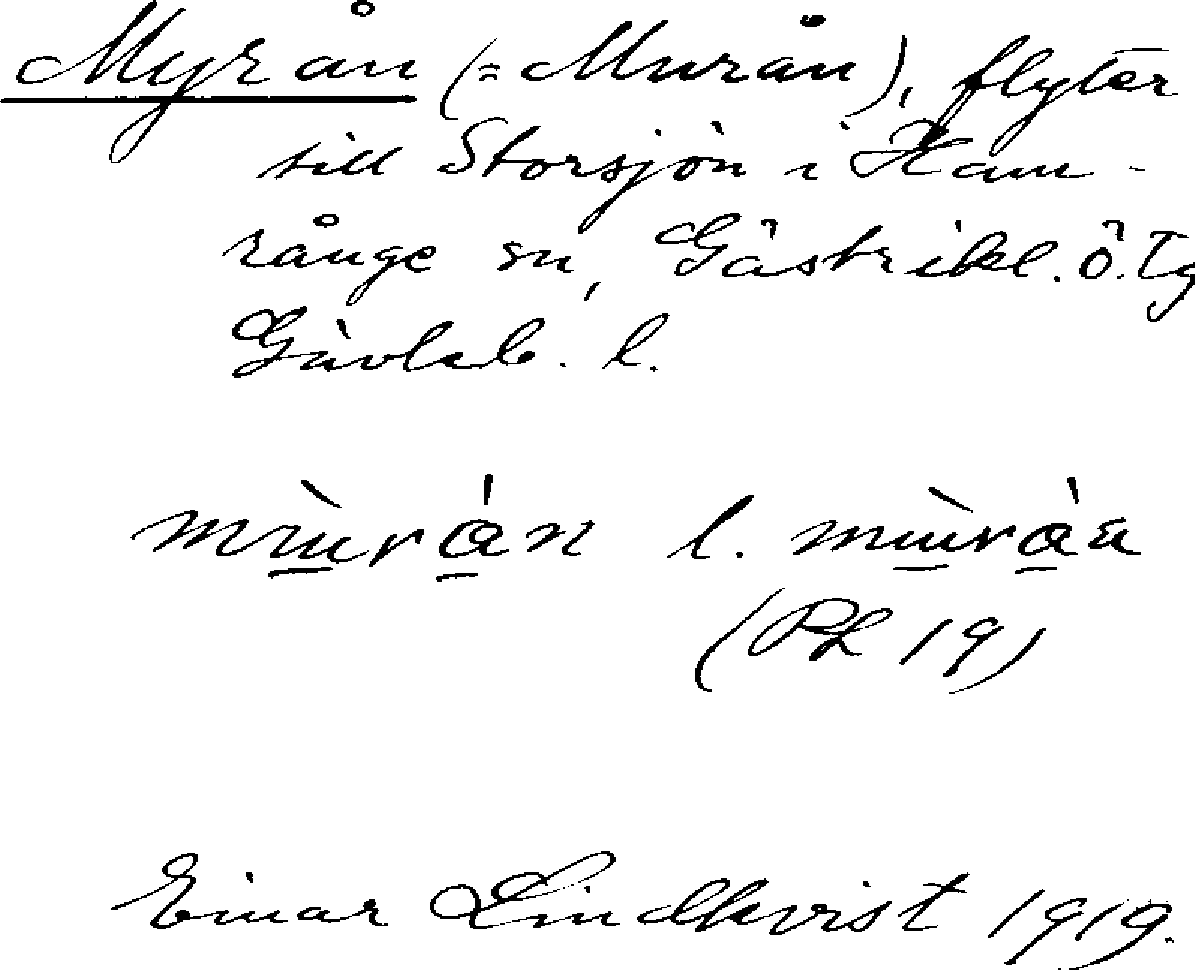 Myrån (= Murån), flyter
till Storsjön i Ham-
rånge sn, Gästrikl. ö. Tg
Gävleb. l.
mùrån l. mùråa
(PL 19)
Einar Lindkvist 1919.